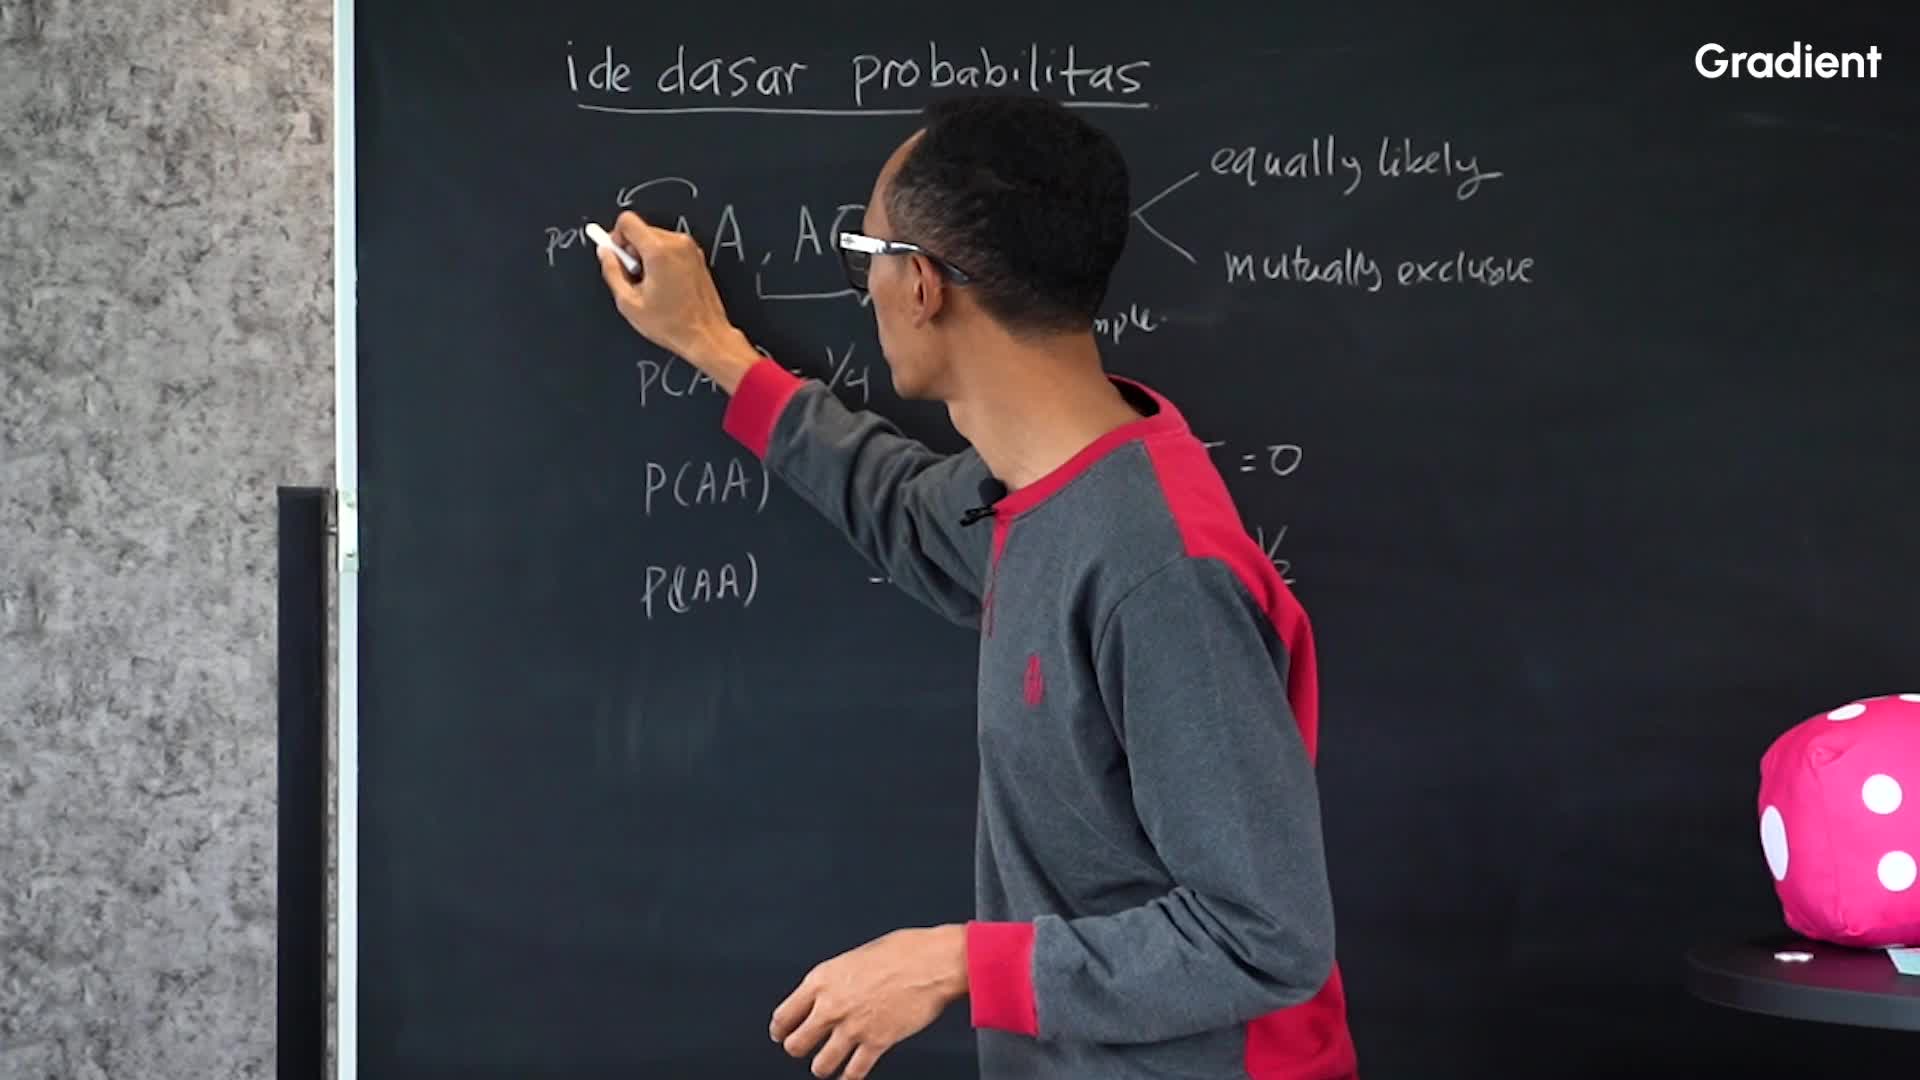 Gradient
ide dasar probabilitas
equally likely
AA, AG
mutually exclusive
P(A = 1/4
P(AA) = 0
P(AA) 1/2